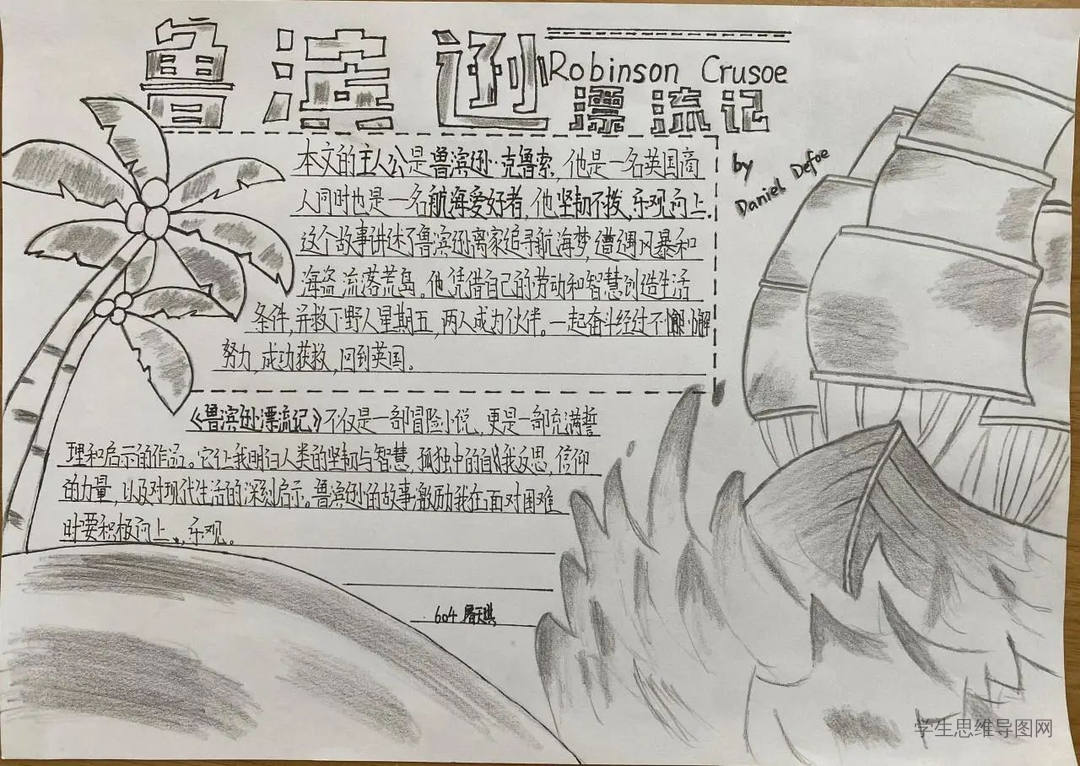 鲁滨逊
Robinson Crusoe
漂流记
by
Daniel Defoe
本文的主人公是鲁滨逊·克鲁索，他是一名英国商
人同时也是一名航海爱好者，他坚韧不拨，乐观向上.
这个故事讲述了鲁滨逊离家追寻航海梦，遭遇风暴和
海盗，流落荒岛。他凭借自己的劳动和智慧创造生活
条件，并救下野人星期五，两人成为伙伴。一起奋斗经过不懈
努力，成功获救，回到英国。
《鲁滨逊漂流记》不仅是一部冒险小说，更是一部充满哲
理和启示的作品。它让我明白人类的坚韧与智慧，孤独中的自我反思，信仰
的力量，以及对现代生活的深刻启示。鲁滨逊的故事激励我在面对困难
时要积极向上，乐观。
604
学生思维导图网